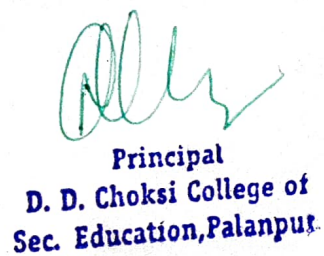 Principal
D. D. Choksi College of
Sec. Education,Palanpur